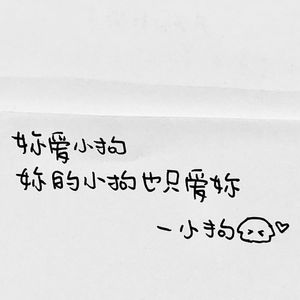 妳爱小狗
妳的小狗也只爱妳
一小狗